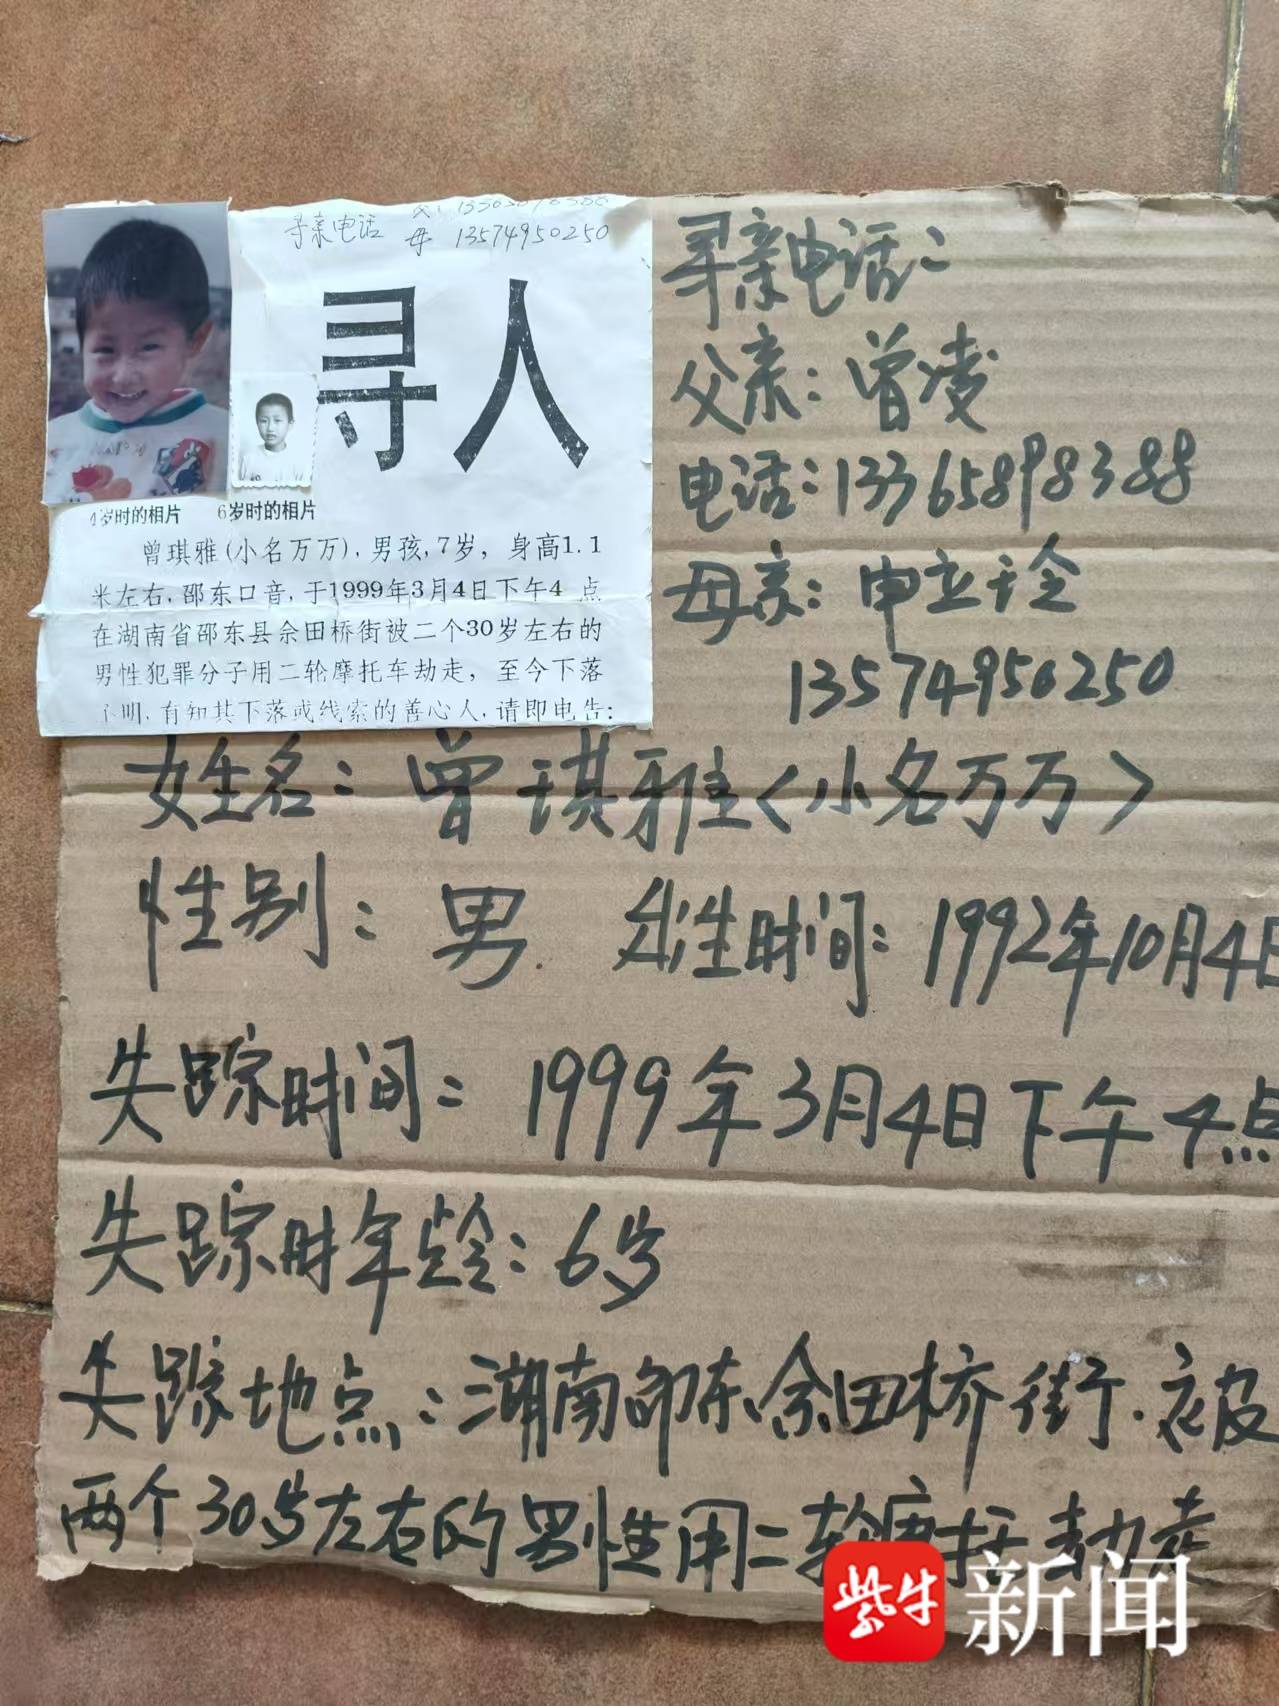 寻亲电话 父:
母 13574950250
寻人
4岁时的相片 6岁时的相片
曾琪雅(小名万万),男孩,7岁,身高1.1
米左右,邵东口音,于1999年3月4日下午4点
在湖南省邵东县佘田桥街被二个30岁左右的
男性犯罪分子用二轮摩托车劫走,至今下落
不明,有知其下落或线索的善心人,请即电告:
寻亲电话:
父亲:曾凌
电话:13365898388
母亲:申立玲
13574950250
姓名:曾琪雅<小名万万>
性别:男 出生时间:1992年10月4日
失踪时间:1999年3月4日下午4点
失踪时年龄:6岁
失踪地点:湖南邵东佘田桥街.被
两个30岁左右的男性用二轮摩托劫走
紫牛新闻